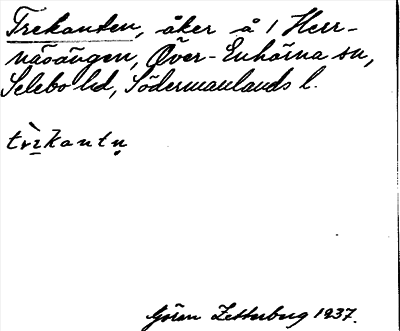 Trekanten, åker å 1 Herr-
näsängen, Över-Enhörna sn,
Selebo hd, Södermanlands l.
trìkantn̥
Göran Zetterberg 1937.